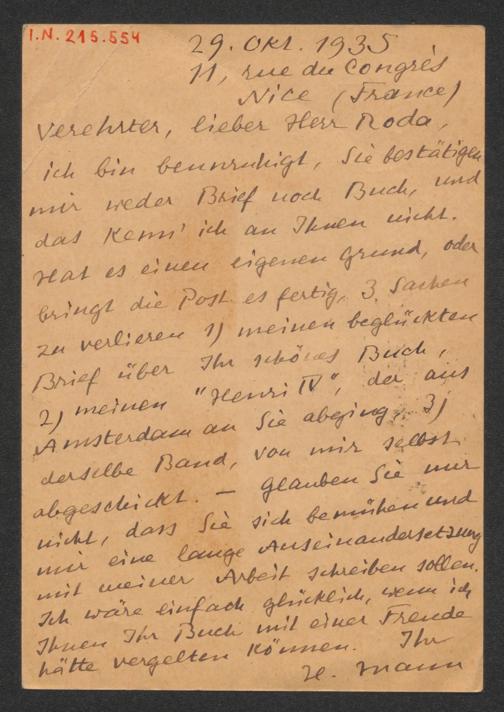 I.N. 215.554
29. Okt. 1935
11, rue du Congrès
Nice (France)
Verehrter, lieber Herr Roda,
ich bin beunruhigt, Sie bestätigen
mir weder Brief noch Buch, und
das kenn' ich an Ihnen nicht.
Hat es einen eigenen Grund, oder
bringt die Post es fertig, 3 Sachen
zu verlieren 1) meinen beglückten
Brief über Ihr schönes Buch,
2) meinen "Henri IV", der aus
Amsterdam an Sie abging, 3)
derselbe Band, von mir selbst
abgeschickt. — Glauben Sie nur
nicht, dass Sie sich bemühen und
mir eine lange Auseinandersetzung
mit meiner Arbeit schreiben sollen.
Ich wäre einfach glücklich, wenn ich
Ihnen Ihr Buch mit einer Freude
hätte vergelten können. Ihr
H. Mann